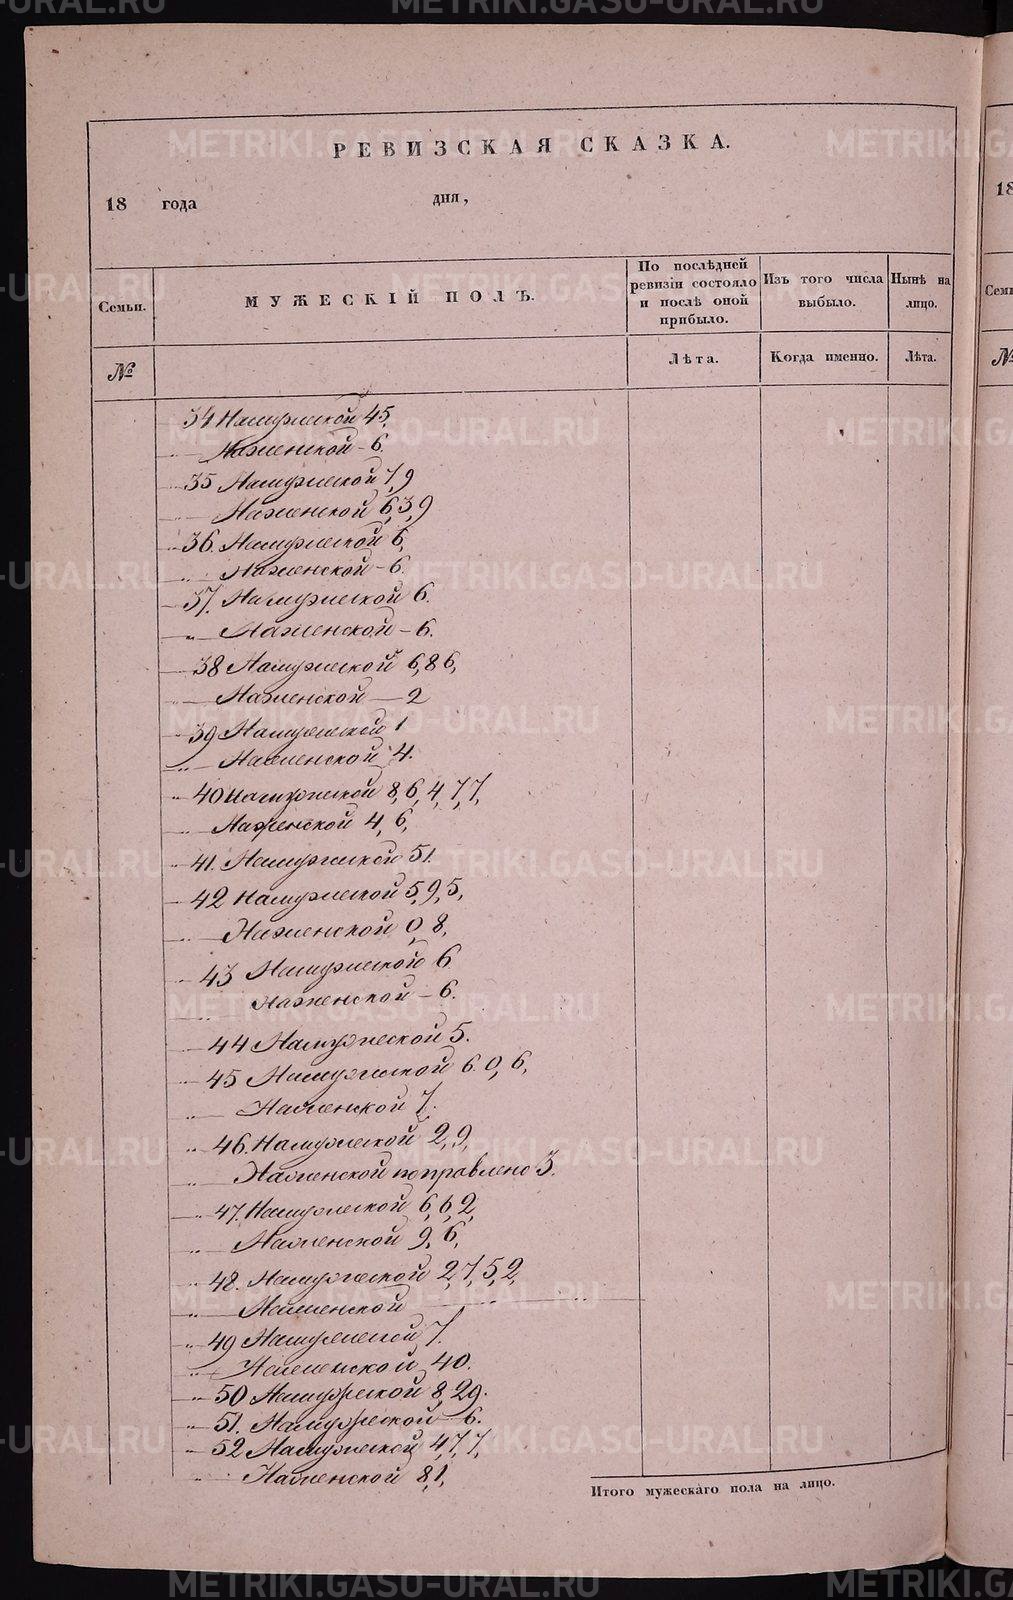 РЕВИЗСКАЯ СКАЗКА.
18 года дня,
Семьи.
МУЖЕСКІЙ ПОЛЪ.
По послѣдней ревизіи состояло и послѣ оной прибыло.
Изъ того числа выбыло.
Нынѣ на лицо.
№
Лѣта.
Когда именно.
Лѣта.
34 На мужеской 45,
На женской - 6.
35 На мужеской 7, 9
На женской 6, 3, 9
36. На мужеской 6,
„ На женской - 6.
37. На мужеской 6.
„ На женской - 6.
38 На мужеской 6, 8 6,
На женской - 2
39 На мужеской 1
„ На женской 4.
„ 40 На мужеской 8, 6, 4, 7, 7,
На женской 4, 6,
„ 41. На мужеской 51.
42 На мужеской 5, 9, 5,
„ На женской 0, 8,
„ 43 На мужеской 6
На женской - 6.
„ 44 На мужеской 5.
„ 45 На мужеской 6 0, 6,
„ На женской 7.
„ 46. На мужеской 2, 9,
„ На женской поправлено 3.
„ 47. На мужеской 6, 6, 2,
„ На женской 9, 6,
„ 48. На мужеской 2, 7, 5, 2,
„ На женской
„ 49 На мужеской 7.
„ На женской 40.
„ 50 На мужеской 8, 29.
„ 51. На мужеской 6.
„ 52 На мужеской 4, 7, 7,
„ На женской 8, 1,
Итого мужескаго пола на лицо.
18
№
METRIKI.GASO-URAL.RU